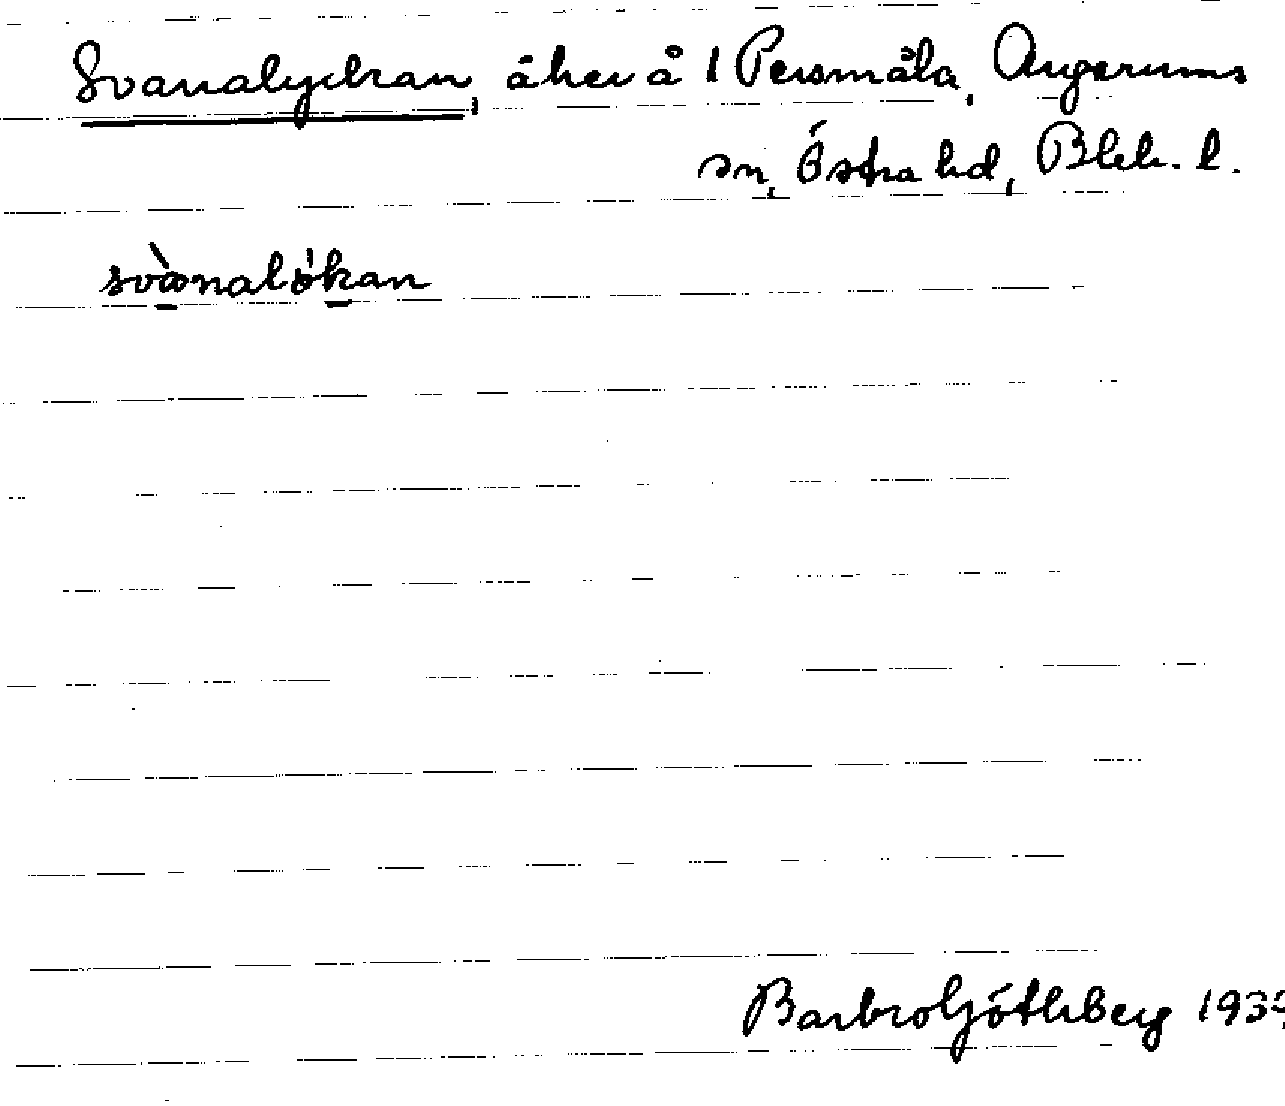 Svanalyckan, åker å 1 Persmåla, Augerums
sn, Östra hd, Blek. l.
Barbro Göthberg